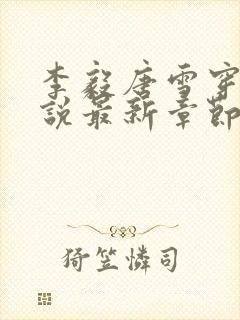 李毅唐雪穿
说最新章节
猗笠怜司